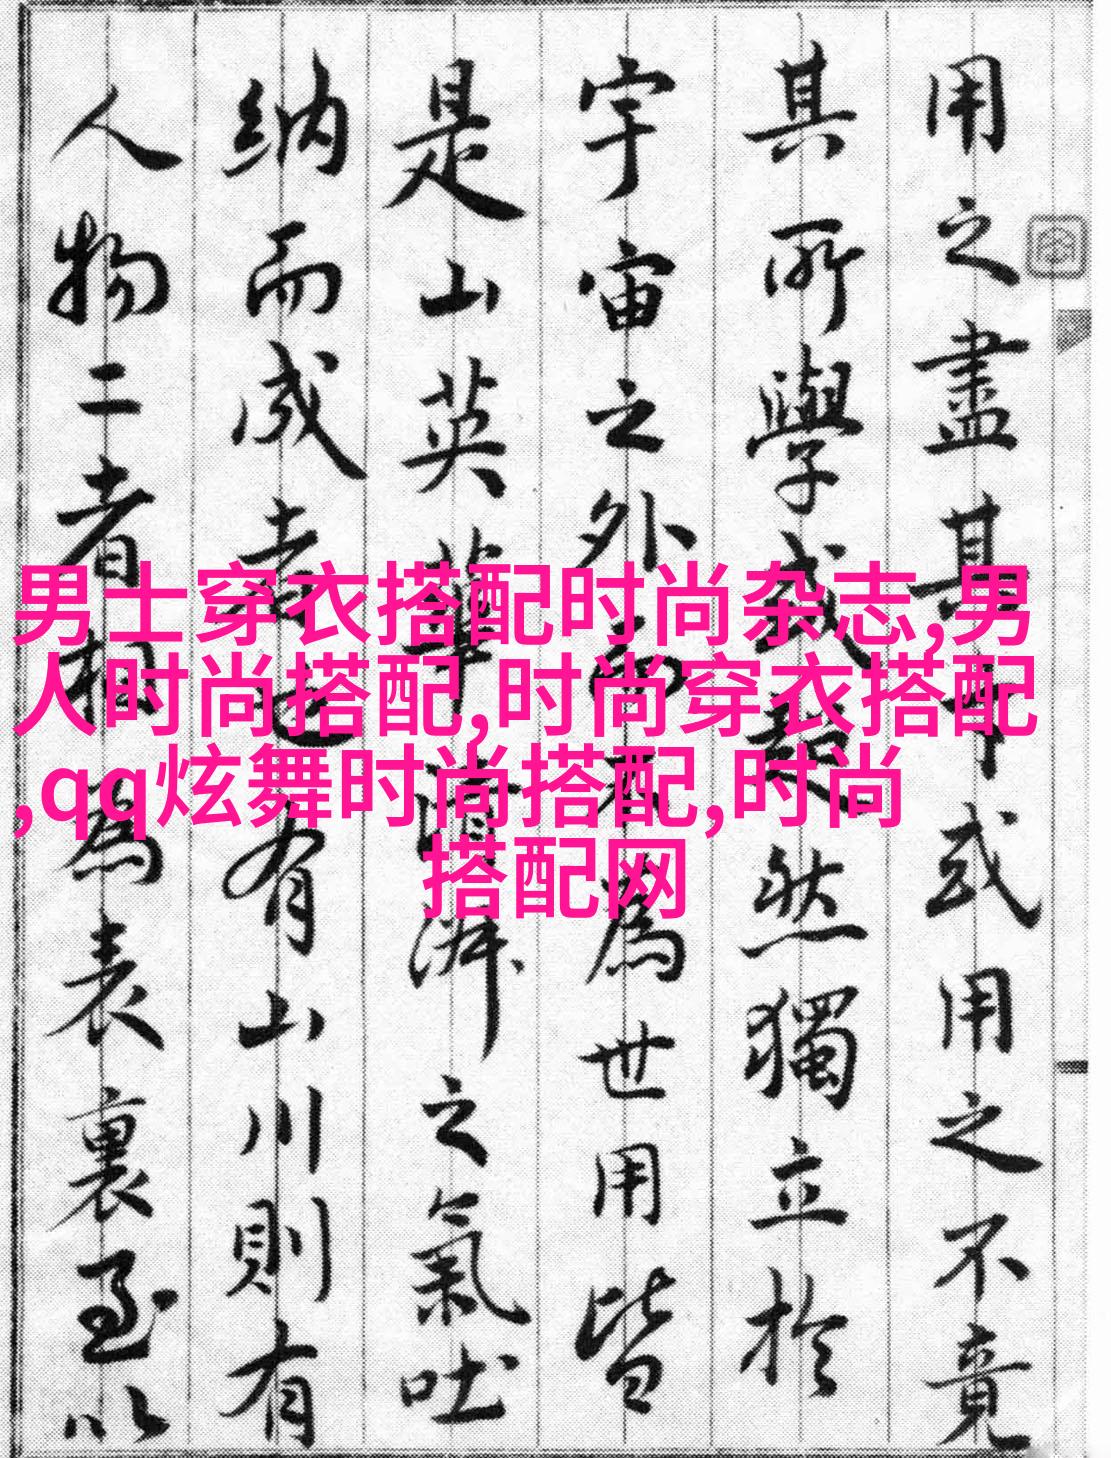 用之盡其才或用之不竟
其所學或超然獨立於
宇宙之外不為世用皆
是山英華湃之氣吐
納而成者也有山川則有
人物二者相為表裏至以
男士穿衣搭配时尚杂志,男
人时尚搭配,时尚穿衣搭配
,qq炫舞时尚搭配,时尚
搭配网